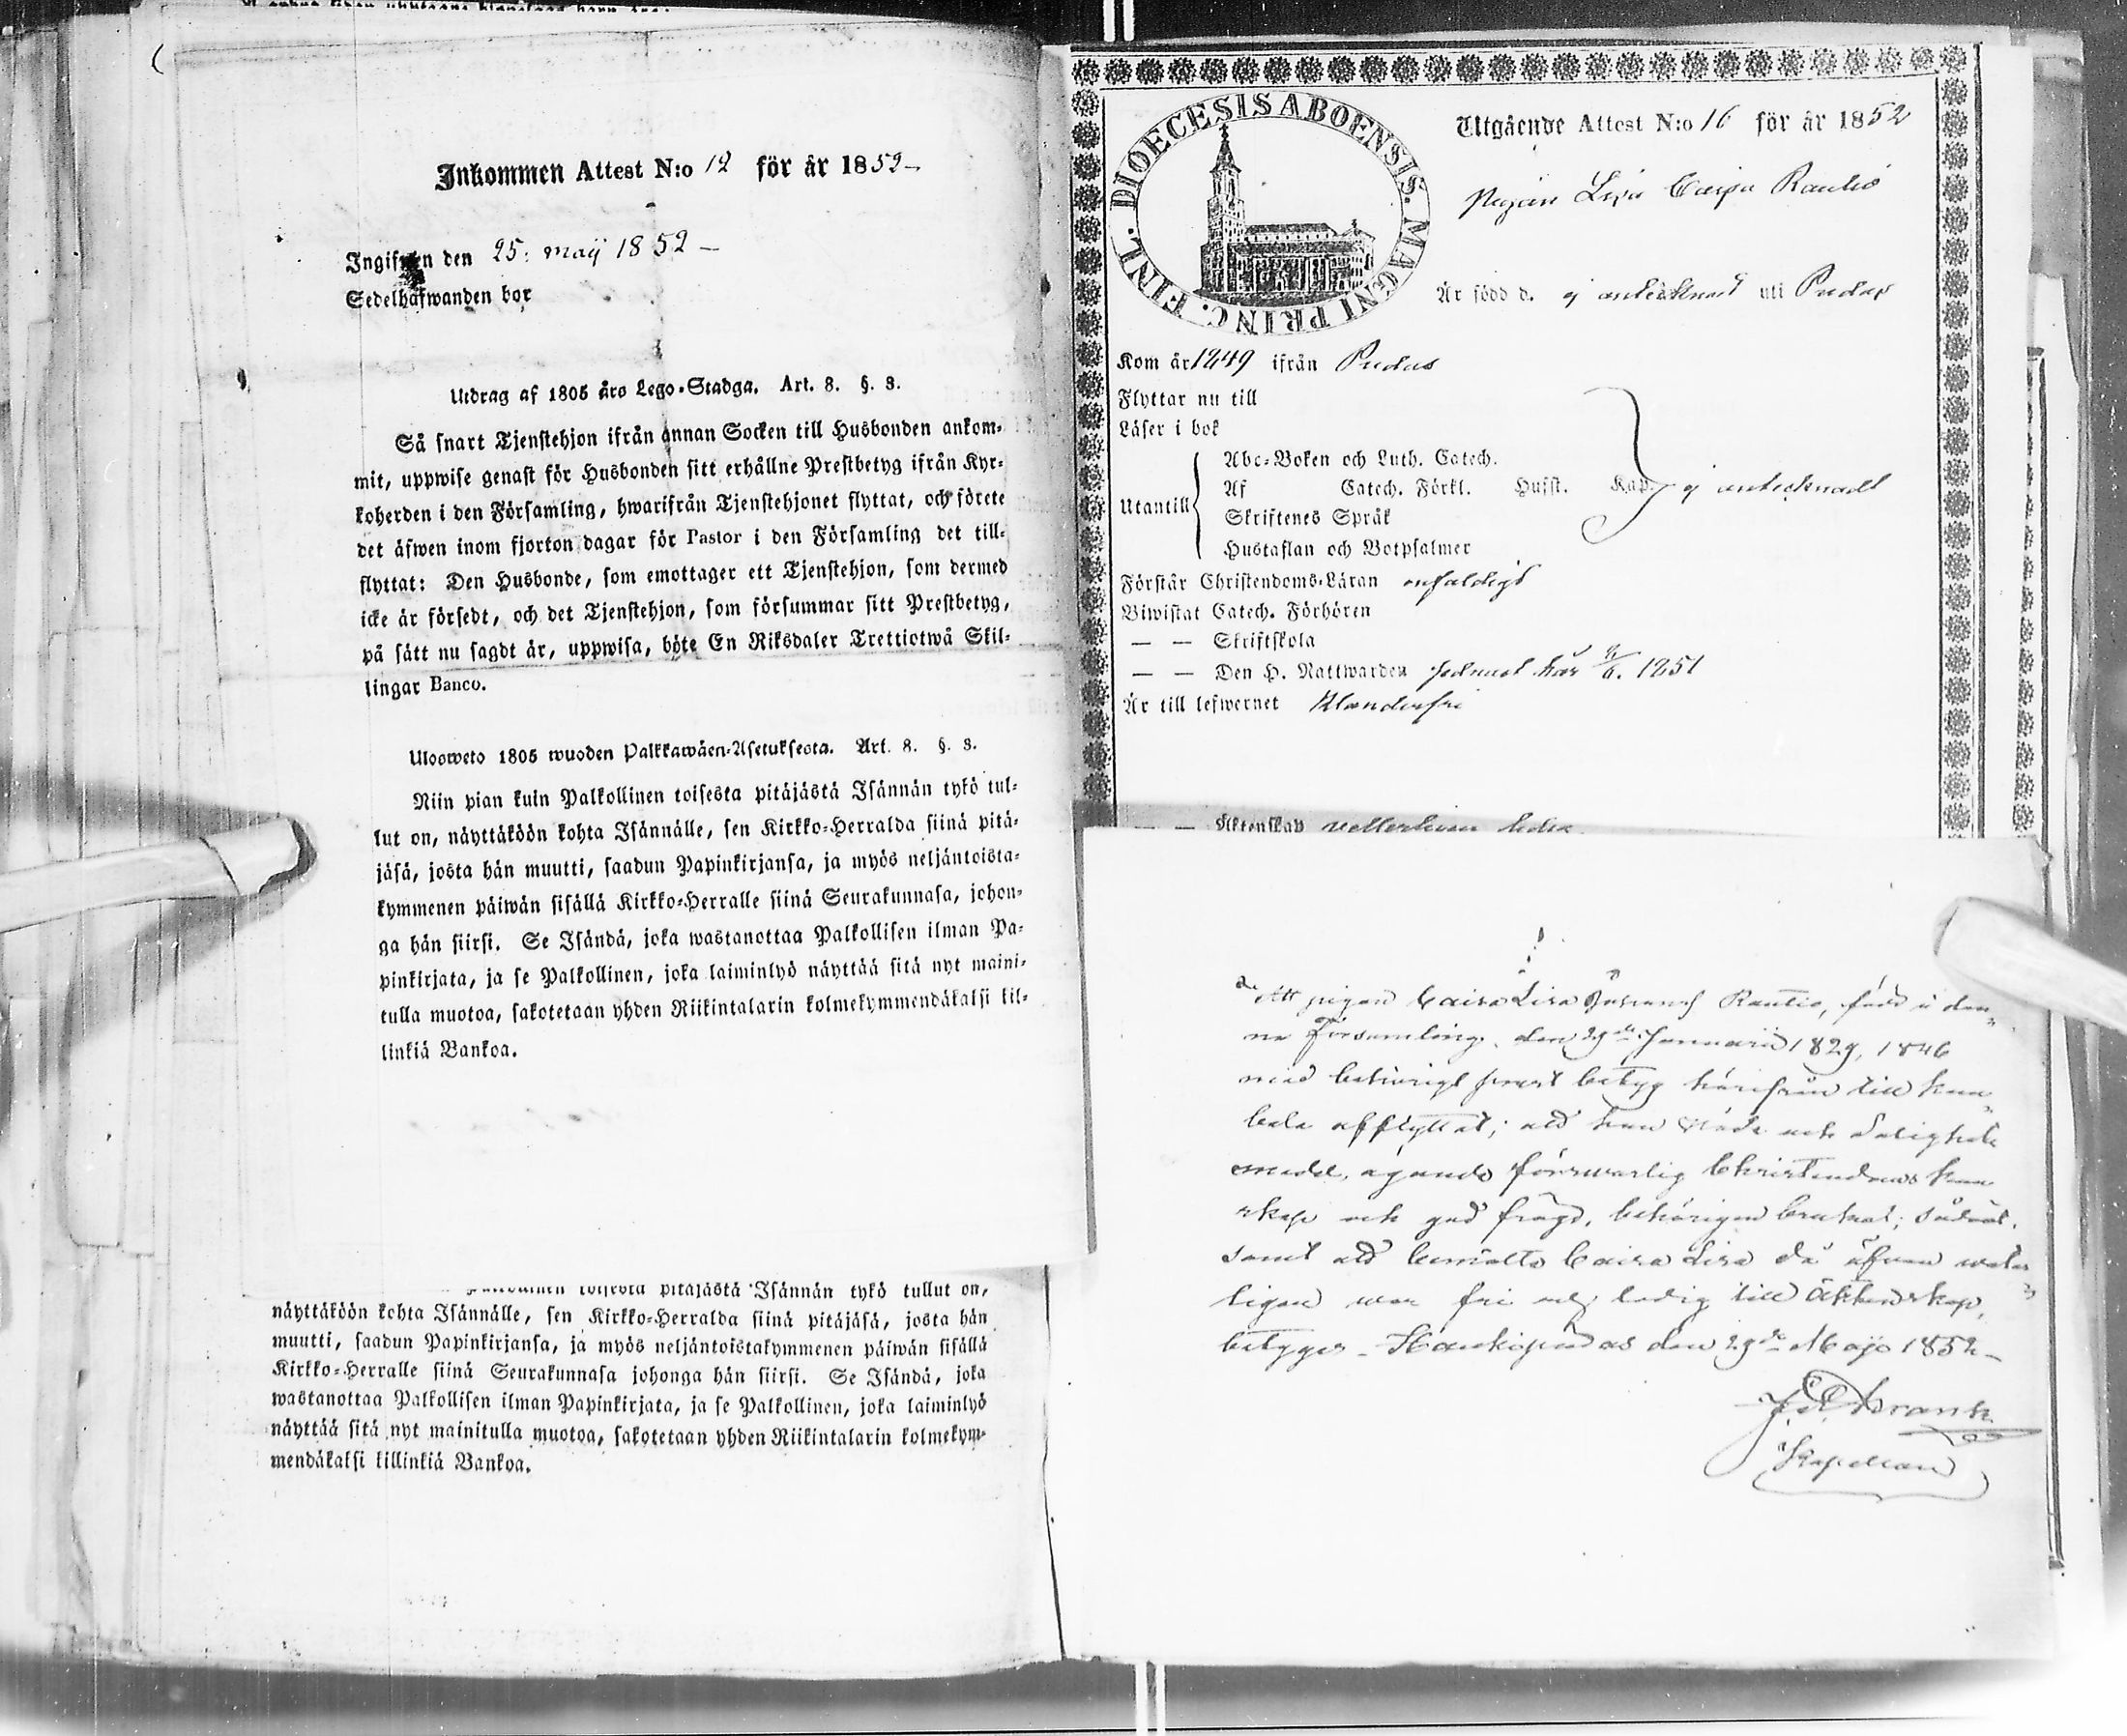 Inkommen Attest N:o 12 för år 1852
Ingifven den 25: maij 1852
Sedelhafwanden bor
Utdrag af 1805 års Lego-Stadga. Art. 8. §. 3.
Så snart Tjenstehjon ifrån annan Socken till Husbonden ankom-
mit, uppwise genast för Husbonden sitt erhållne Prestbetyg ifrån Kyr-
koherden i den Församling, hwarifrån Tjenstehjonet flyttat, och förete
det äfwen inom fjorton dagar för Pastor i den Församling det till-
flyttat: Den Husbonde, som emottager ett Tjenstehjon, som dermed
icke är försedt, och det Tjenstehjon, som försummar sitt Prestbetyg,
på sätt nu sagdt är, uppwisa, böte En Riksdaler Trettiotwå Skil-
lingar Banco.
Ulosweto 1805 wuoden Palkkawäen-Asetuksesta. Art. 8. §. 3.
Niin pian kuin Palkollinen toisesta pitäjästä Isännän tykö tul-
lut on, näyttäköön kohta Isännälle, sen Kirkko-Herralda siinä pitä-
jäsä, josta hän muutti, saadun Papinkirjansa, ja myös neljäntoista-
kymmenen päiwän sisällä Kirkko-Herralle siinä Seurakunnasa, johon-
ga hän siirsi. Se Isändä, joka wastanottaa Palkollisen ilman Pa-
pinkirjata, ja se Palkollinen, joka laiminlyö näyttää sitä nyt maini-
tulla muotoa, sakotetaan yhden Riikintalarin kolmekymmendäkaksi kil-
linkiä Bankoa.
pitäjästä Isännän tykö tullut on,
näyttäköön kohta Isännälle, sen Kirkko-Herralda siinä pitäjäsä, josta hän
muutti, saadun Papinkirjansa, ja myös neljäntoistakymmenen päiwän sisällä
Kirkko-Herralle siinä Seurakunnasa johonga hän siirsi. Se Isändä, joka
wastanottaa Palkollisen ilman Papinkirjata, ja se Palkollinen, joka laiminlyö
näyttää sitä nyt mainitulla muotoa, sakotetaan yhden Riikintalarin kolmekym-
mendäkaksi killinkiä Bankoa.
DIOECESIS ABOENSIS. MAGNI PRINC. FINL.
Utgående Attest N:o 16 för år 1852
Pigan Lisa Caisa Rautio
Är född d. ej antecknadt uti Pudas
Kom år 1849 ifrån Pudas
Flyttar nu till
Läser i bok
Utantill
Abc-Boken och Luth. Catech.
Af Catech. Förkl. Husst. Kap. ej antecknadt
Skriftenes Språk
Hustaflan och Botpsalmer
Förstår Christendoms-Läran enfaldigt
Biwistat Catech. Förhören
— — Skriftskola
— — Den H. Nattwarden sednast här 1851
Är till lefwernet Klanderfri
— — Äktenskap vetterligen ledig
Att pigan Caisa Lisa Rautio, född i den-
na Församling den 29de Januarii 1829, 1846
med behörigt prest betyg härifrån till Kem
afflyttat; att hon Nåde och Salighets
medel, ägande försvarlig Christendoms kun
skap och god frägd, behörigen brukat; sådant,
samt att bemälte Caisa Lisa då äfven veter
ligen war fri och ledig till äktenskap,
betygar Haukipudas den 29de Maji 1852
Kapellan